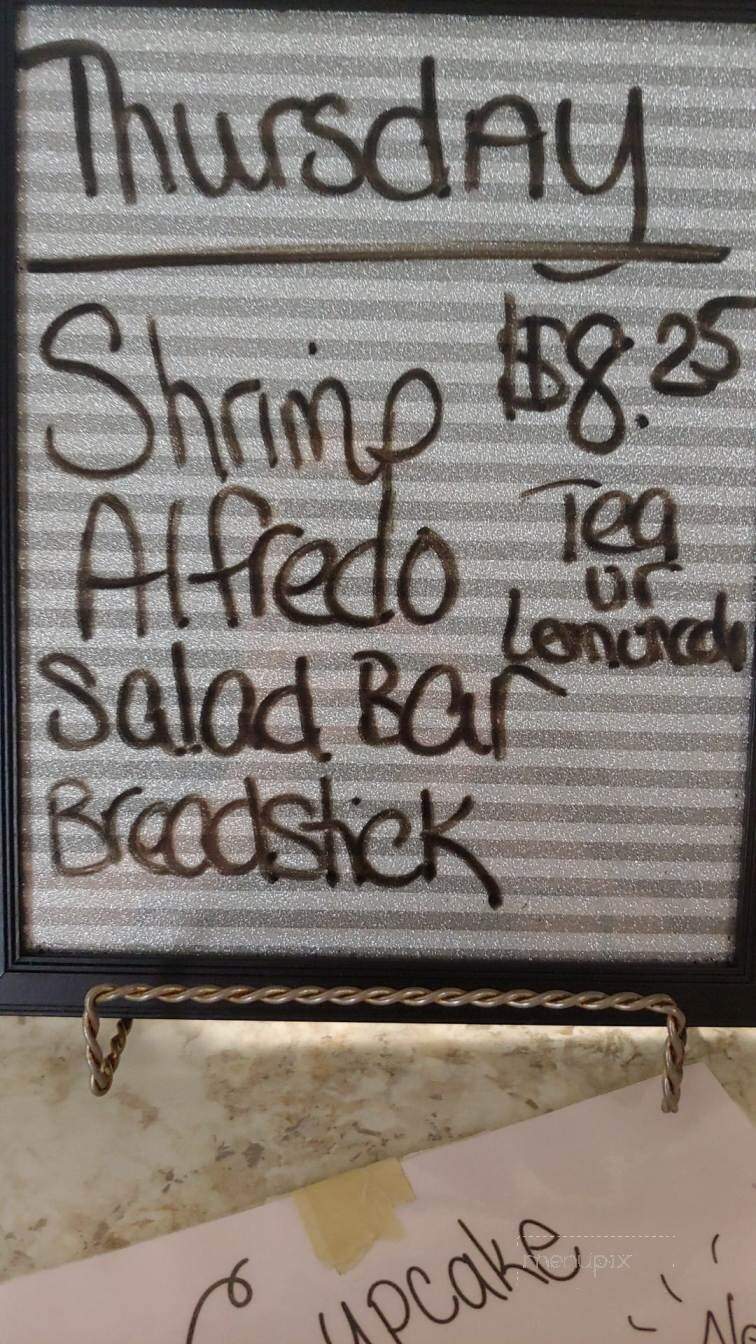 Thursday
Shrimp $8.25
Alfredo Tea
or
Lemonade
Salad Bar
Breadstick
upcake
menupix